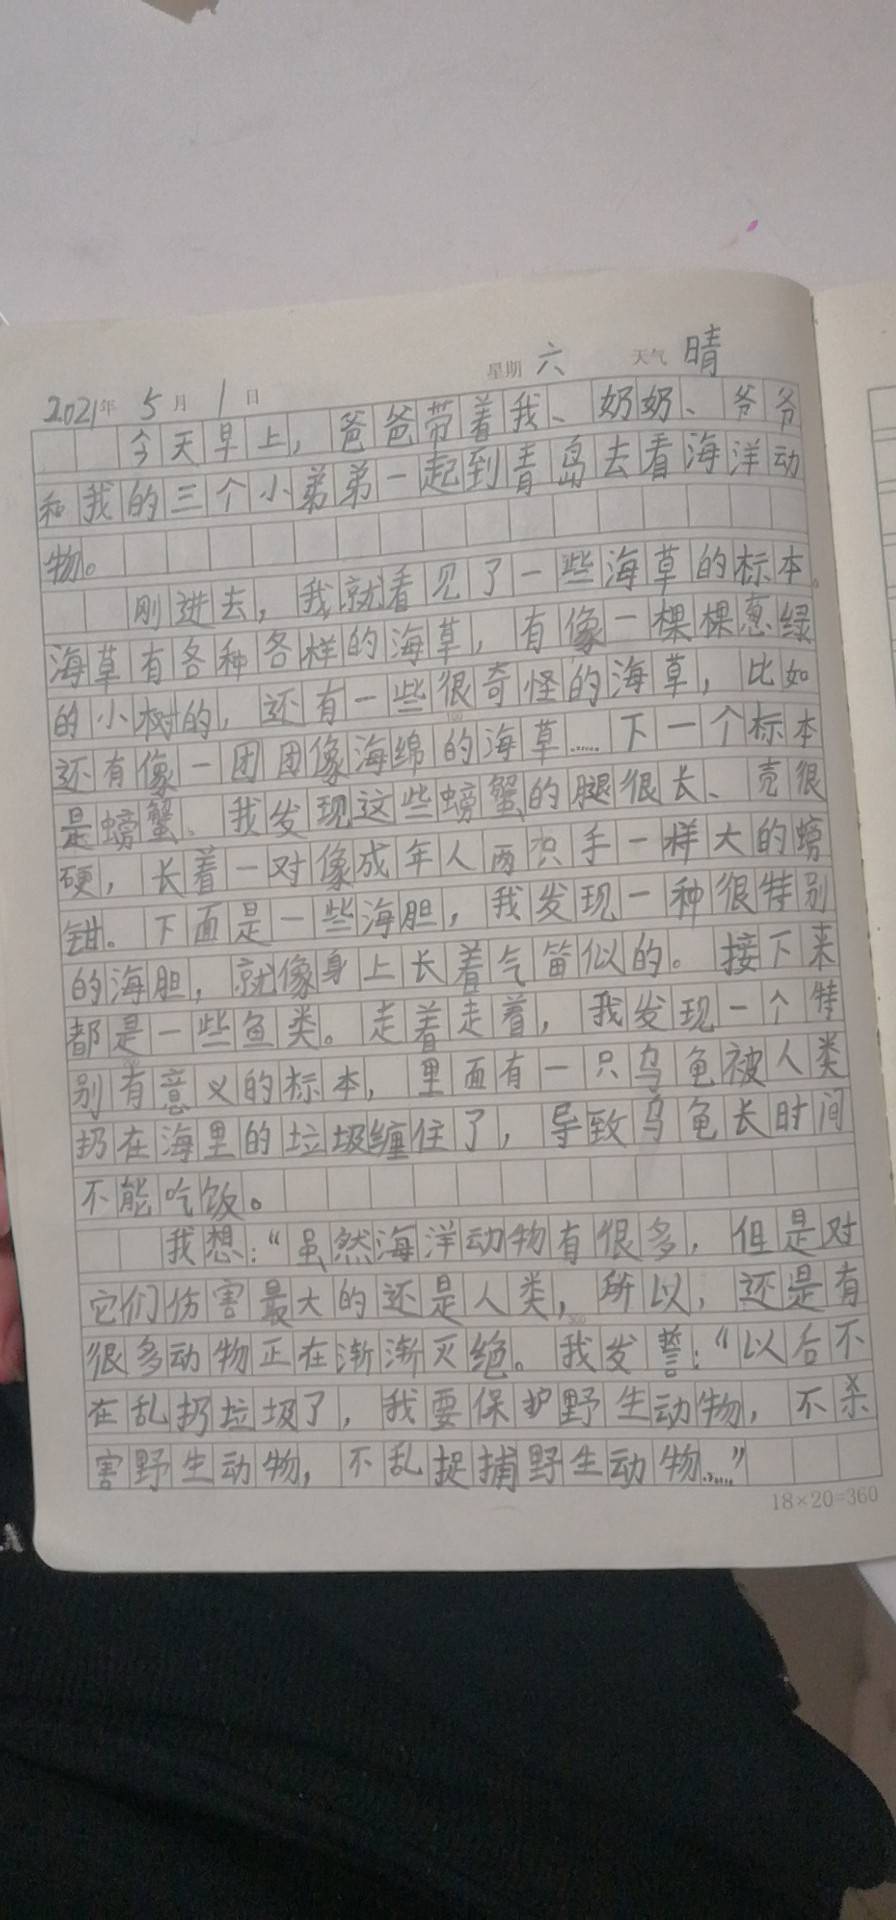 2021年 5月 1日 星期 六 天气 晴
今天早上，爸爸带着我、奶奶、爷爷
和我的三个小弟弟一起到青岛去看海洋动
物。
刚进去，我就看见了一些海草的标本。
海草有各种各样的海草，有像一棵棵葱绿
的小树的，还有一些很奇怪的海草，比如
还有像一团团像海绵的海草……下一个标本
是螃蟹、我发现这些螃蟹的腿很长、壳很
硬，长着一对像成年人两只手一样大的螃
钳。下面是一些海胆，我发现一种很特别
的海胆，就像身上长着气笛似的。接下来
都是一些鱼类。走着走着，我发现一个特
别有意义的标本，里面有一只乌龟被人类
扔在海里的垃圾缠住了，导致乌龟长时间
不能吃饭。
我想：“虽然海洋动物有很多，但是对
它们伤害最大的还是人类，所以，还是有
很多动物正在渐渐灭绝。我发誓：“以后不
在乱扔垃圾了，我要保护野生动物，不杀
害野生动物，不乱捉捕野生动物……”
18×20=360